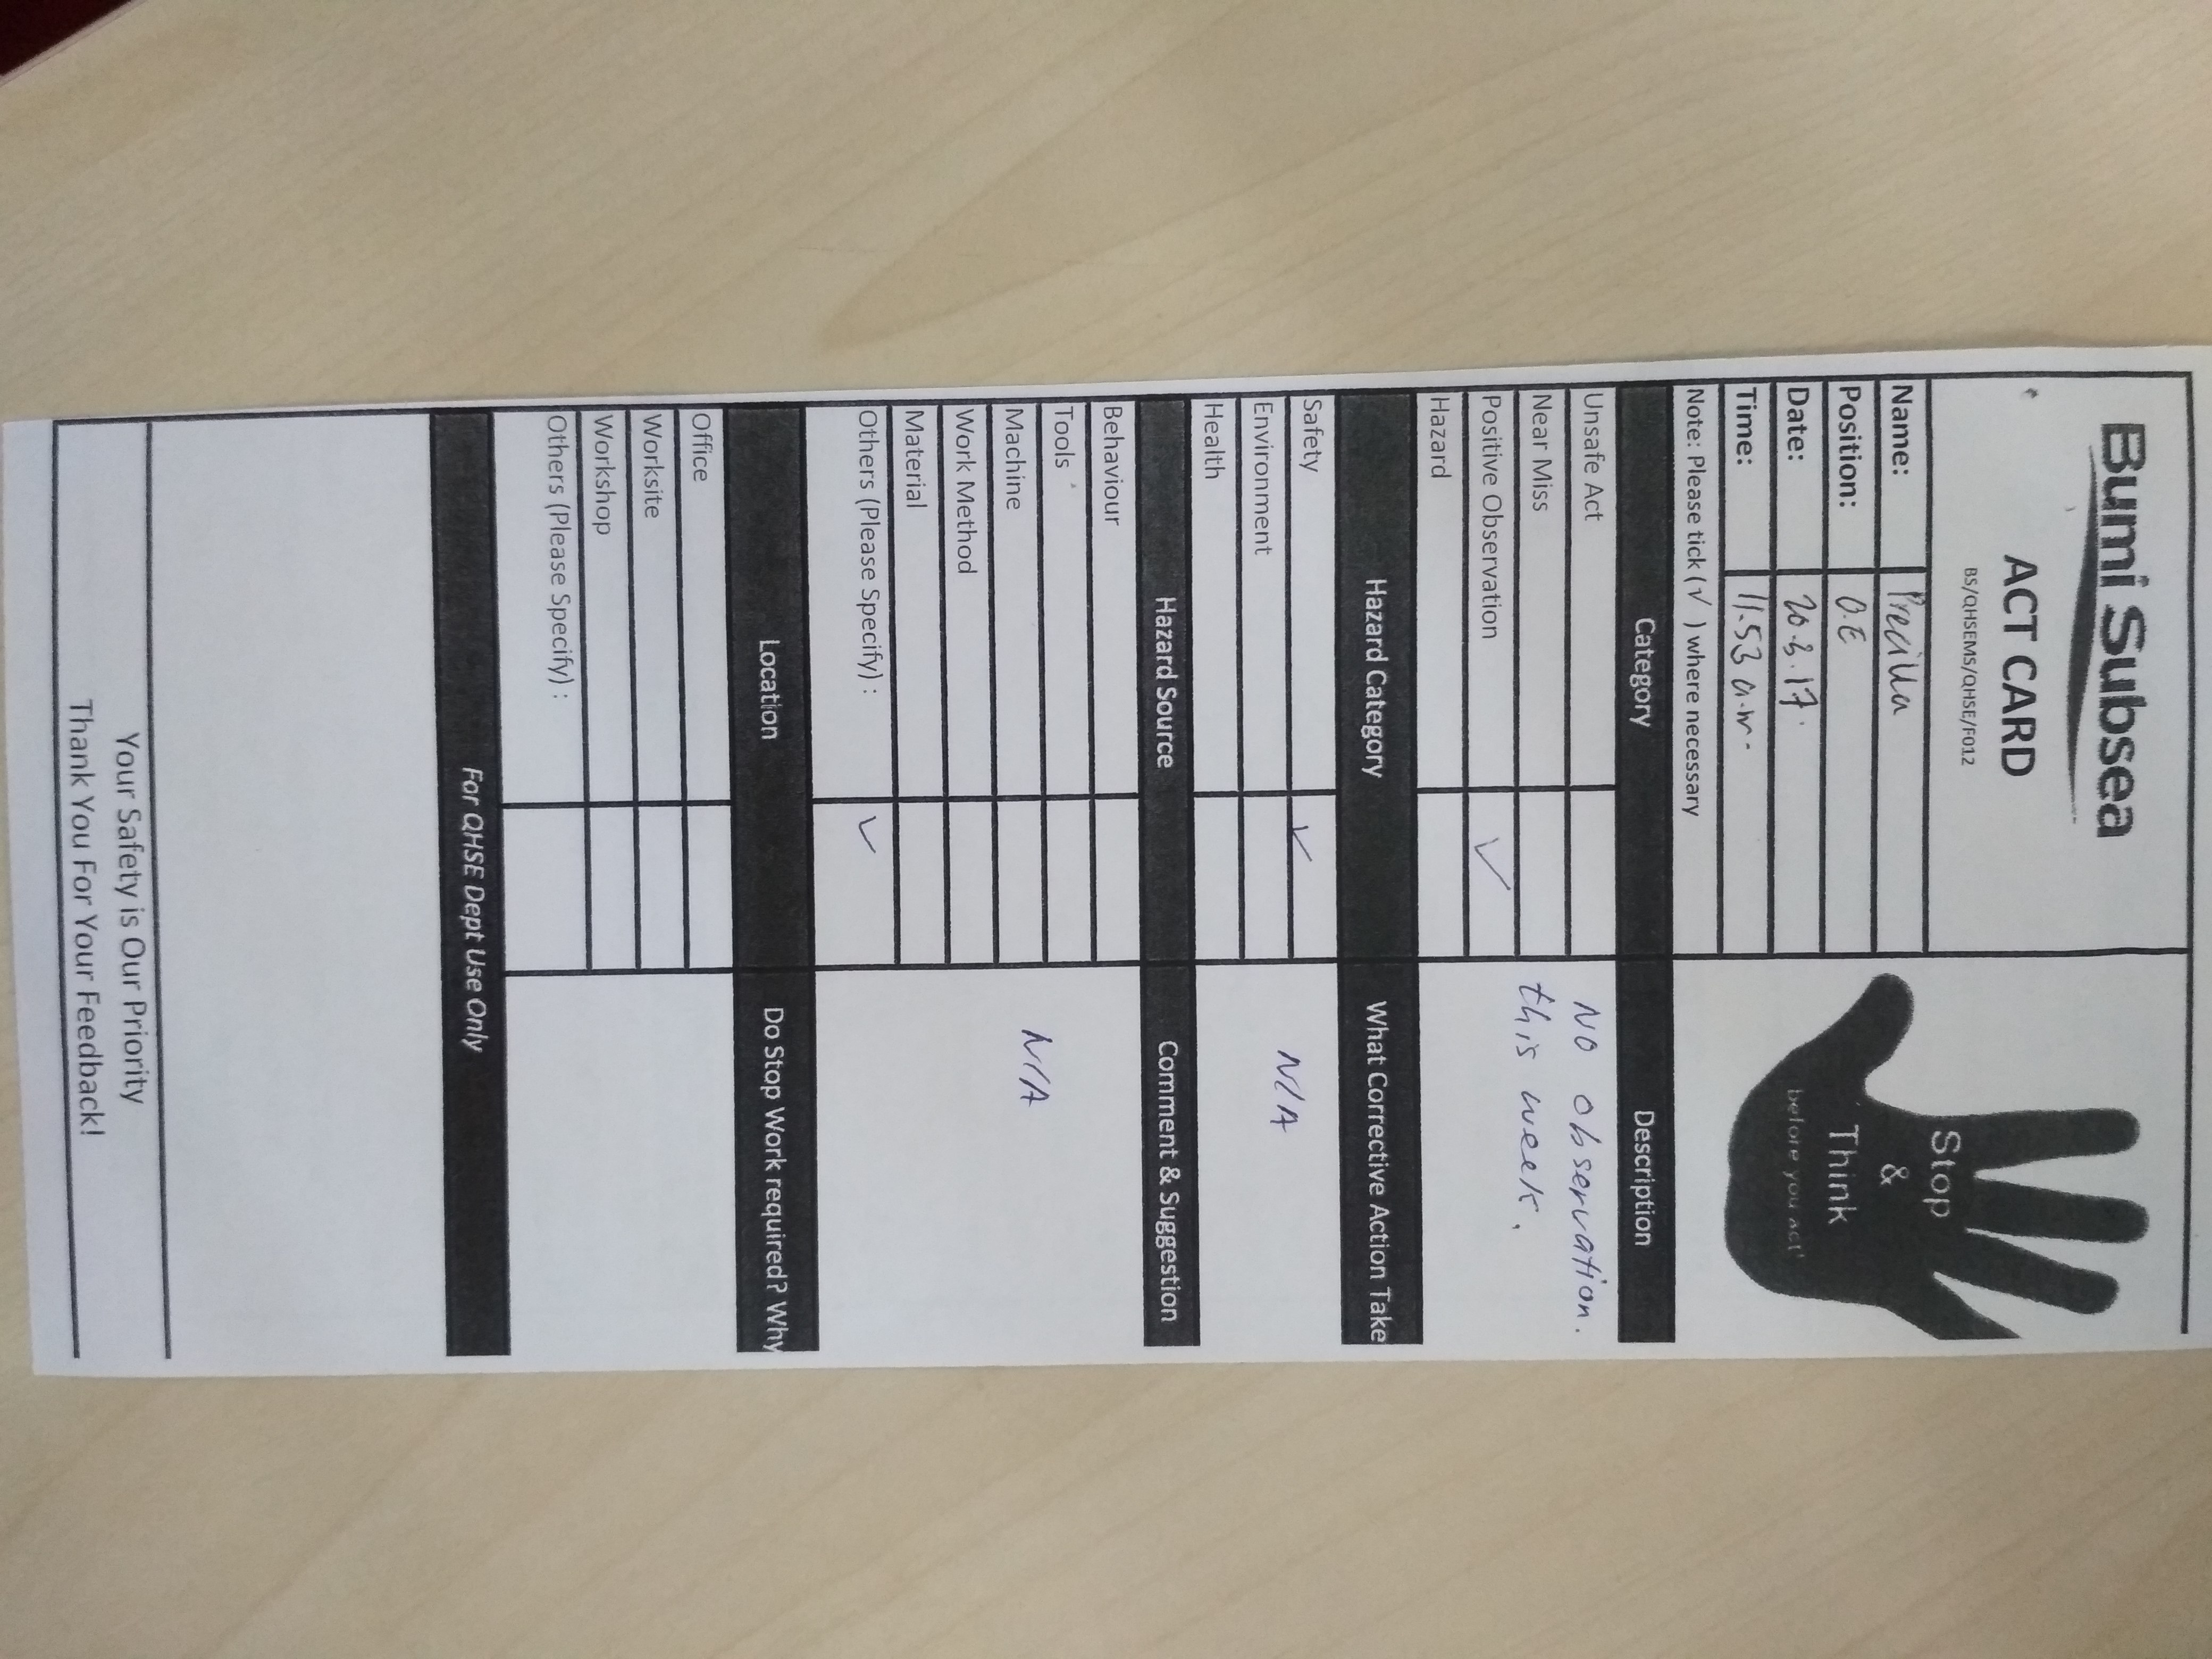 Bumi Subsea
ACT CARD
BS/QHSEMS/QHSE/F012
Stop
&
Think
before you act!
Name: Precilla
Position: O.E
Date: 20.3.17.
Time: 11.53 a.m.
Note: Please tick (√ ) where necessary
Category Description
Unsafe Act
Near Miss
Positive Observation ✓
Hazard
No observation.
this week.
Hazard Category What Corrective Action Take
Safety ✓
Environment
Health
N/A
Hazard Source Comment & Suggestion
Behaviour
Tools
Machine
Work Method
Material
Others (Please Specify) : ✓
N/A
Location Do Stop Work required? Why
Office
Worksite
Workshop
Others (Please Specify) :
For QHSE Dept Use Only
Your Safety is Our Priority
Thank You For Your Feedback!